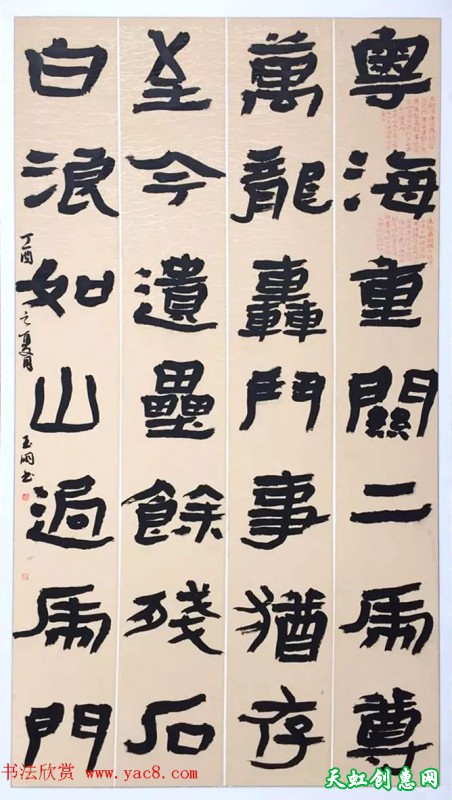 粤海重關二虎尊
萬龍轟鬥事猶存
至今遺壘餘殘石
白浪如山過虎門
丁酉之夏月
书法欣赏 www.yac8.com
天虹创惠网